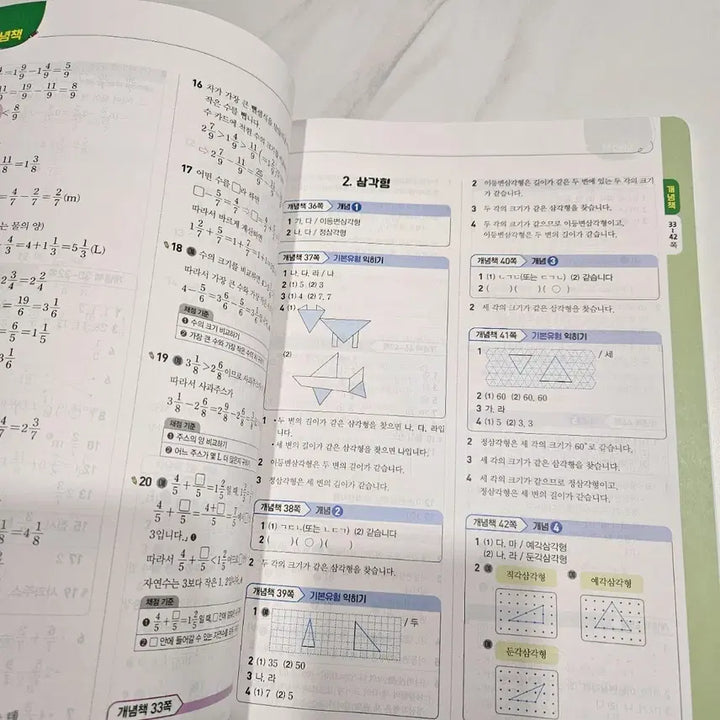 념책
1 9/9 - 1 4/9 = 5/9
19/9 - 11/9 = 8/9
< 8/9
11/8 = 1 3/8
4/7 - 2/7 = 2/7 (m)
는 물의 양)
4/3 = 4 + 1 1/3 = 5 1/3 (L)
2 3/4 = 2 2/4
= 19/6 = 3 1/6
6/5 = 1 1/5
3 1/6
= 2 3/7
1/8 = 4 1/8
16 차가 가장 큰 뺄셈식을
작은 수를 뺍니다.
수 카드에 적힌 수의 크기를
2 7/9 > 1 4/9 > 11/9
⇨ 2 7/9 - 11/9 = 25/9
17 어떤 수를 □라 하면
□ - 5/7 = 4/7
따라서 바르게 계산하면
1 2/7 + 5/7 = 1 + 7/7
18 예 수의 크기를 비교하면
따라서 가장 큰 수와 가장
4 - 5/6 = 3 6/6 - 5/6 = 3 1/6
채점 기준
❶ 수의 크기 비교하기
❷ 가장 큰 수와 가장 작은 수의 차
19 예 3 1/8 > 2 6/8 이므로 사과주스가
따라서 사과주스가
3 1/8 - 2 6/8 = 2 9/8 - 2 6/8
채점 기준
❶ 주스의 양 비교하기
❷ 어느 주스가 몇 L 더 많은지 구하기
20 예 4/5 + □/5 = 1 2/5 일 때
4/5 + □/5 = 4+□/5
3입니다. ❶
따라서 4/5 + □/5 < 1 2/5
자연수는 3보다 작은 1, 2입니다.
채점 기준
❶ 4/5 + □/5 = 1 2/5 일 때
❷ □ 안에 들어갈 수 있는 자연수
개념책 33쪽
2. 삼각형
개념책 36쪽 개념 1
1 가, 다 / 이등변삼각형
2 나, 다 / 정삼각형
개념책 37쪽 기본유형 익히기
1 나, 다, 라 / 나
2 (1) 5 (2) 3
3 (1) 4 (2) 7, 7
4 (1)
(2)
1 • 두 변의 길이가 같은 삼각형을 찾으면 나, 다, 라입
니다.
• 세 변의 길이가 같은 삼각형을 찾으면 나입니다.
2 이등변삼각형은 두 변의 길이가 같습니다.
3 정삼각형은 세 변의 길이가 같습니다.
개념책 38쪽 개념 2
1 (1) ㄱㄷㄴ(또는 ㄴㄷㄱ) (2) 같습니다
2 ( ) ( ○ ) ( )
2 두 각의 크기가 같은 삼각형을 찾습니다.
개념책 39쪽 기본유형 익히기
1 예 / 두
2 (1) 35 (2) 50
3 나, 라
4 (1) 7 (2) 5
2 이등변삼각형은 길이가 같은 두 변에 있는 두 각의 크기
가 같습니다.
3 두 각의 크기가 같은 삼각형을 찾습니다.
4 두 각의 크기가 같으므로 이등변삼각형이고,
이등변삼각형은 두 변의 길이가 같습니다.
개념책 40쪽 개념 3
1 (1) ㄴㄱㄷ(또는 ㄷㄱㄴ) (2) 같습니다
2 ( ) ( ) ( ○ )
2 세 각의 크기가 같은 삼각형을 찾습니다.
개념책 41쪽 기본유형 익히기
1 / 세
2 (1) 60 (2) 60, 60
3 가, 라
4 (1) 5 (2) 3, 3
2 정삼각형은 세 각의 크기가 60°로 같습니다.
3 세 각의 크기가 같은 삼각형을 찾습니다.
4 세 각의 크기가 같으므로 정삼각형이고,
정삼각형은 세 변의 길이가 같습니다.
개념책 42쪽 개념 4
1 (1) 다, 마 / 예각삼각형
(2) 나, 라 / 둔각삼각형
2 예 직각삼각형 예 예각삼각형
예 둔각삼각형
개념책
33
~
42
쪽